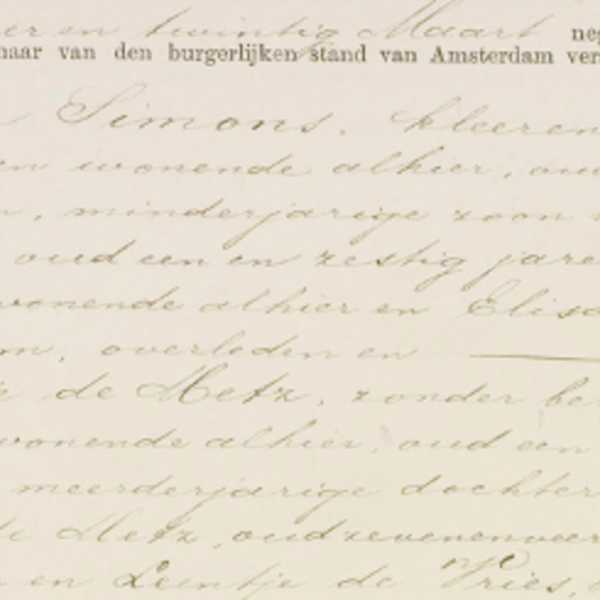 en twintig Maart neg
naar van den burgerlijken stand van Amsterdam ver
Simons, kleeren
en wonende alhier, oud
minderjarige zoon
oud een en zestig jare
wonende alhier en Elisa
overleden en
de Metz, zonder be
wonende alhier, oud een
meerderjarige dochter
de Metz, oud zevenenveer
en Leentje de Vries,